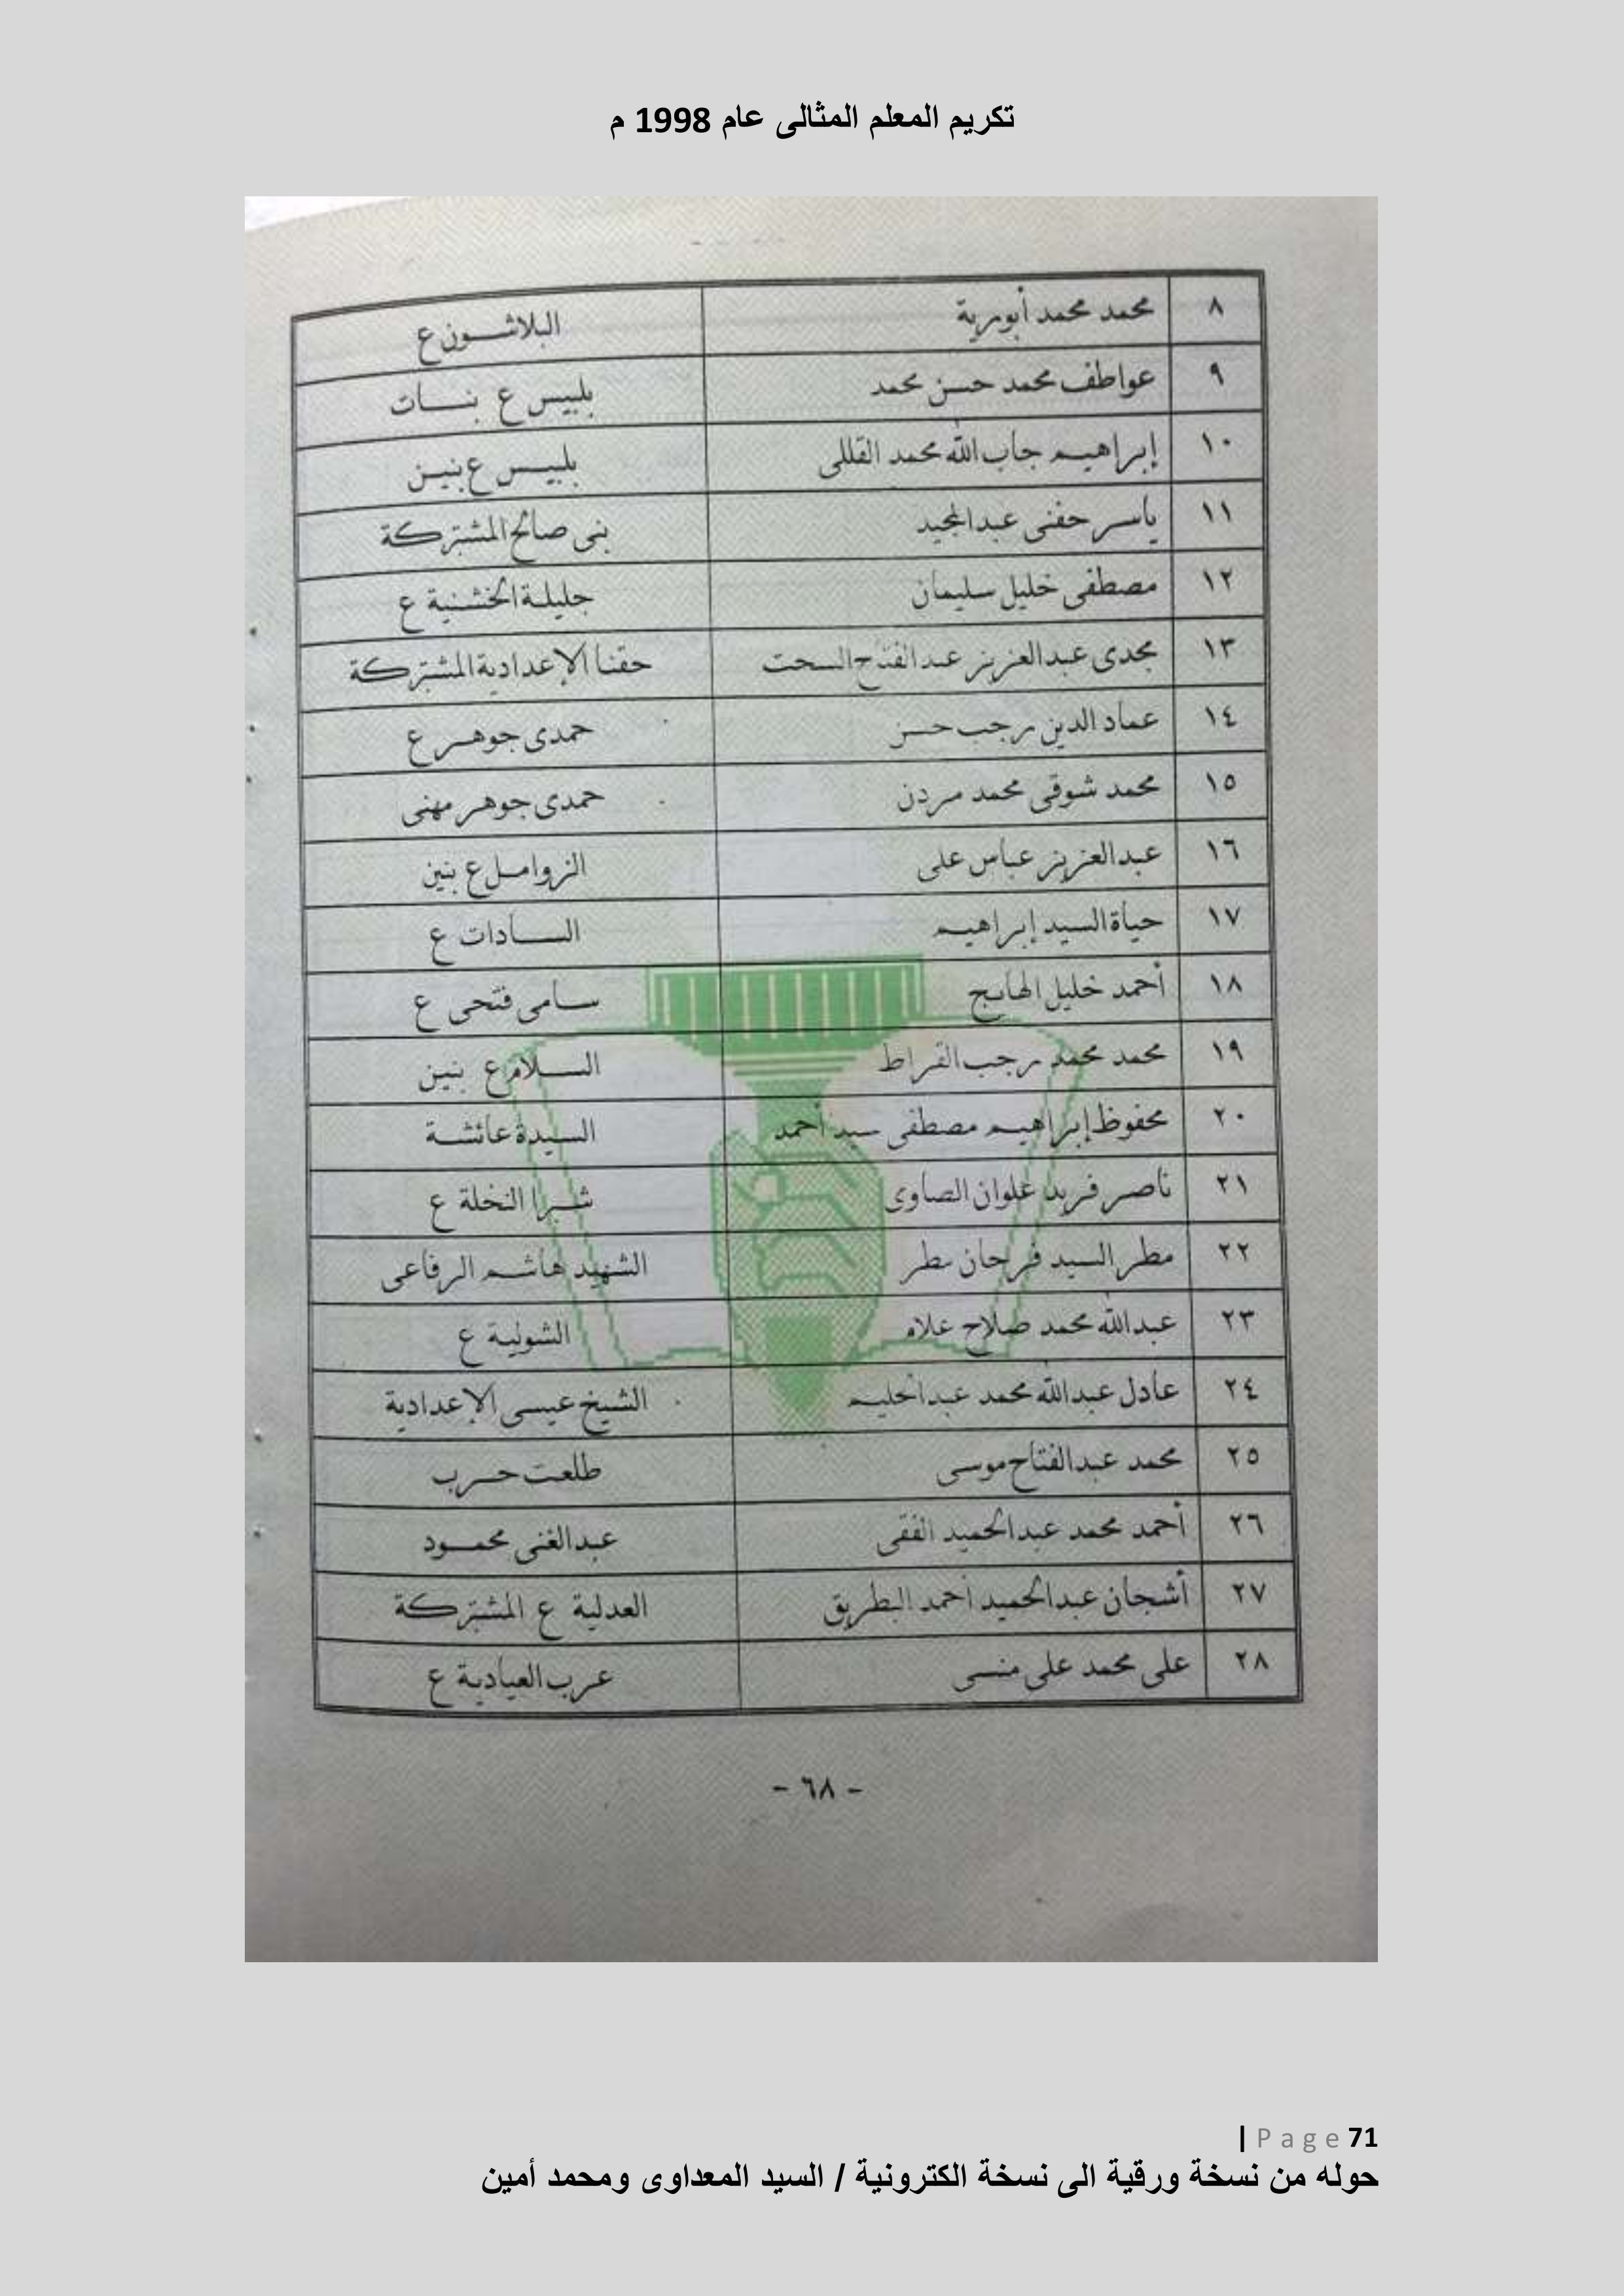 تكريم المعلم المثالى عام 1998 م
٨ محمد محمد أبومرية البلاشون ع
٩ عواطف محمد حسن محمد بلبيس ع بنات
١٠ إبراهيم جاب الله محمد القللى بلبيس ع بنين
١١ ياسر حفنى عبدالمجيد بنى صالح المشتركة
١٢ مصطفى خليل سليمان جليلة الخشنية ع
١٣ مجدى عبدالعزيز عبدالفتاح السحت حفنا الإعدادية المشتركة
١٤ عماد الدين رجب حسن حمدى جوهر ع
١٥ محمد شوقى محمد مردن حمدى جوهر مهنى
١٦ عبدالعزيز عباس على الزوامل ع بنين
١٧ حياة السيد إبراهيم السادات ع
١٨ أحمد خليل الهايج سامى فتحى ع
١٩ محمد محمد رجب القراط السلام ع بنين
٢٠ محفوظ إبراهيم مصطفى سيد أحمد السيدة عائشة
٢١ ناصر فريد علوان الصاوى شبرا النخلة ع
٢٢ مطر السيد فرحان مطر الشهيد هاشم الرفاعى
٢٣ عبدالله محمد صلاح علام الشولية ع
٢٤ عادل عبدالله محمد عبدالحليم الشيخ عيسى الإعدادية
٢٥ محمد عبدالفتاح موسى طلعت حرب
٢٦ أحمد محمد عبدالحميد الفقى عبدالغنى محمود
٢٧ أشجان عبدالحميد أحمد البطريق العدلية ع المشتركة
٢٨ على محمد على منسى عرب العيادية ع
- ٦٨ -
| Page 71
حوله من نسخة ورقية الى نسخة الكترونية / السيد المعداوى ومحمد أمين